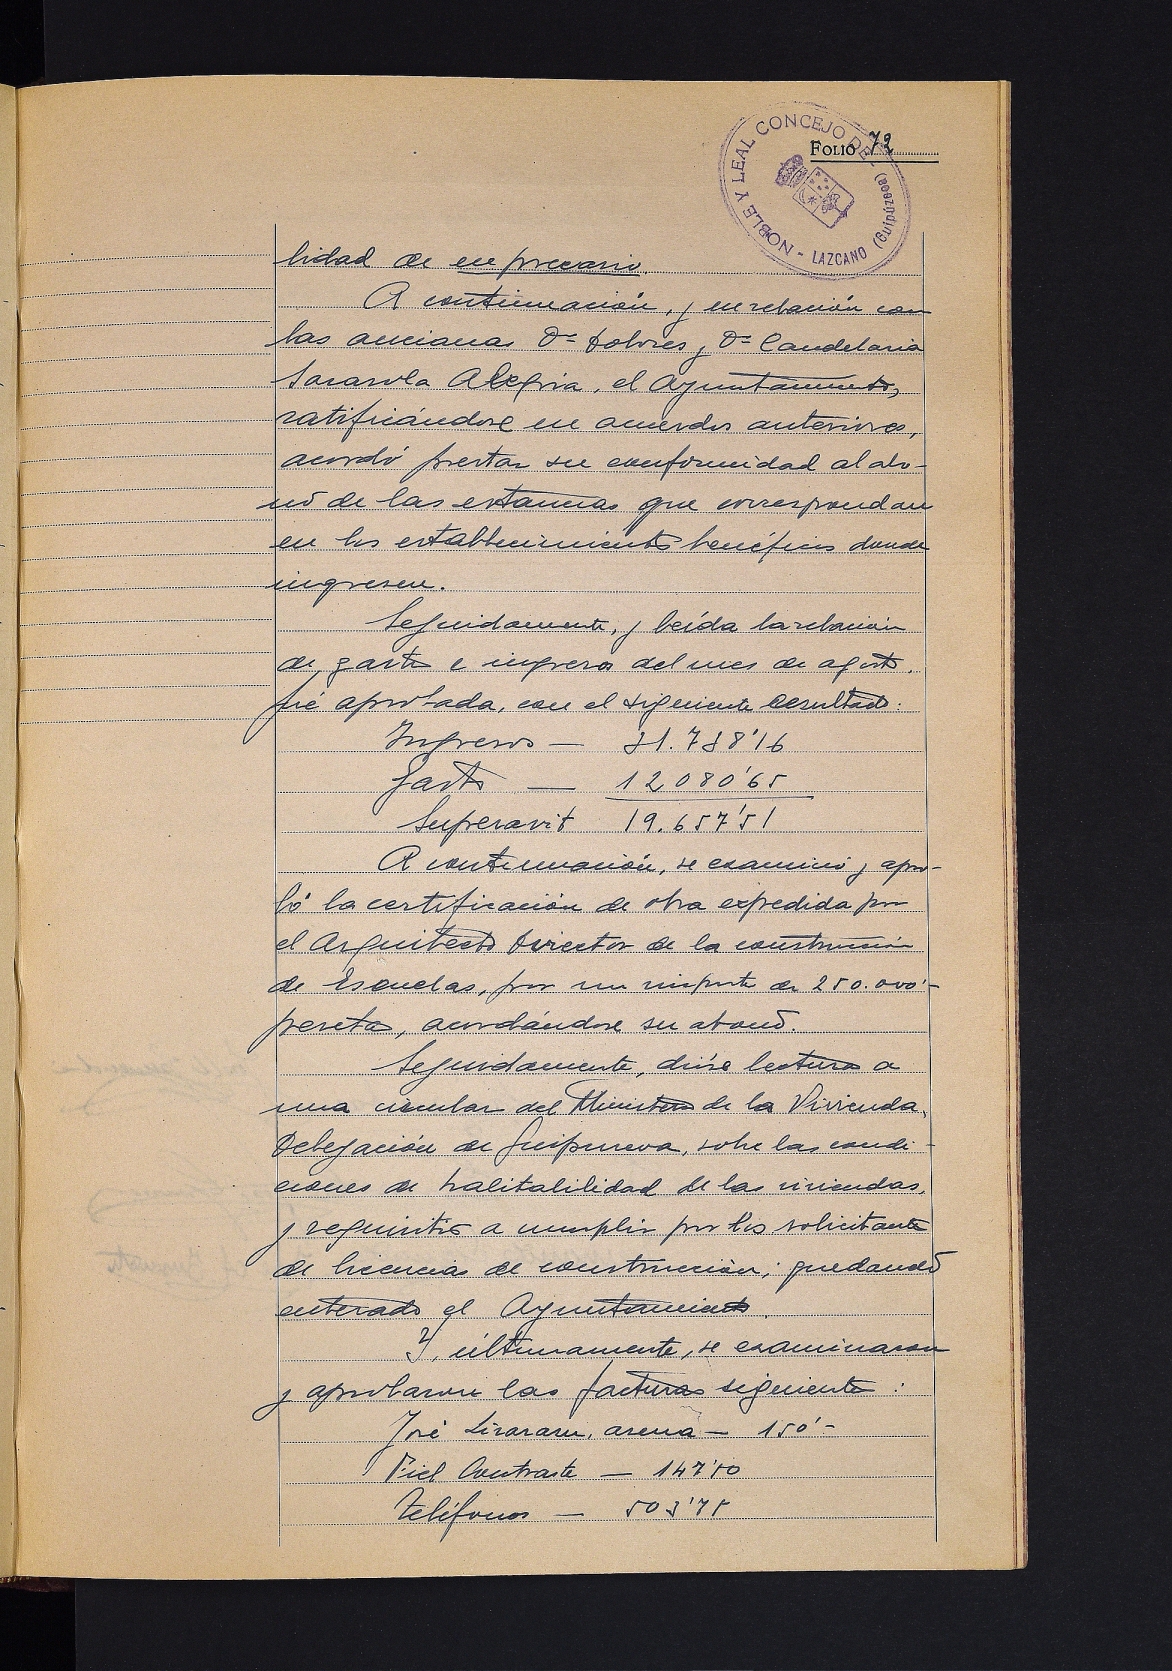 FOLIO 72
NOBLE Y LEAL CONCEJO DE - LAZCANO (Guipúzcoa)
lidad de en precario.
A continuación, y en relación con
las ancianas Dª Dolores y Dª Candelaria
Sarasola Alegria, el Ayuntamiento,
ratificándose en acuerdos anteriores,
acordó prestar su conformidad al abo-
no de las estancias que correspondan
en los establecimientos benéficos donde
ingresen.
Seguidamente, y leída la relación
de gastos e ingresos del mes de agosto,
fué aprobada, con el siguiente resultado:
Ingresos — 31.738'16
Gastos — 12080'65
Superavit 19.657'51
A continuación, se examinó y apro-
bó la certificación de obra expedida por
el Arquitecto Director de la construcción
de Escuelas, por un importe de 250.000'-
pesetas, acordándose su abono.
Seguidamente, dióse lectura a
una circular del Ministerio de la Vivienda,
Delegación de Guipuzcoa, sobre las condi-
ciones de habitabilidad de las viviendas,
y requisitos a cumplir por los solicitantes
de licencias de construcción; quedando
enterado el Ayuntamiento.
Y, últimamente, se examinaron
y aprobaron las facturas siguientes:
José, arena — 150'-
Fiel Contraste — 147'50
Teléfonos — 503'75